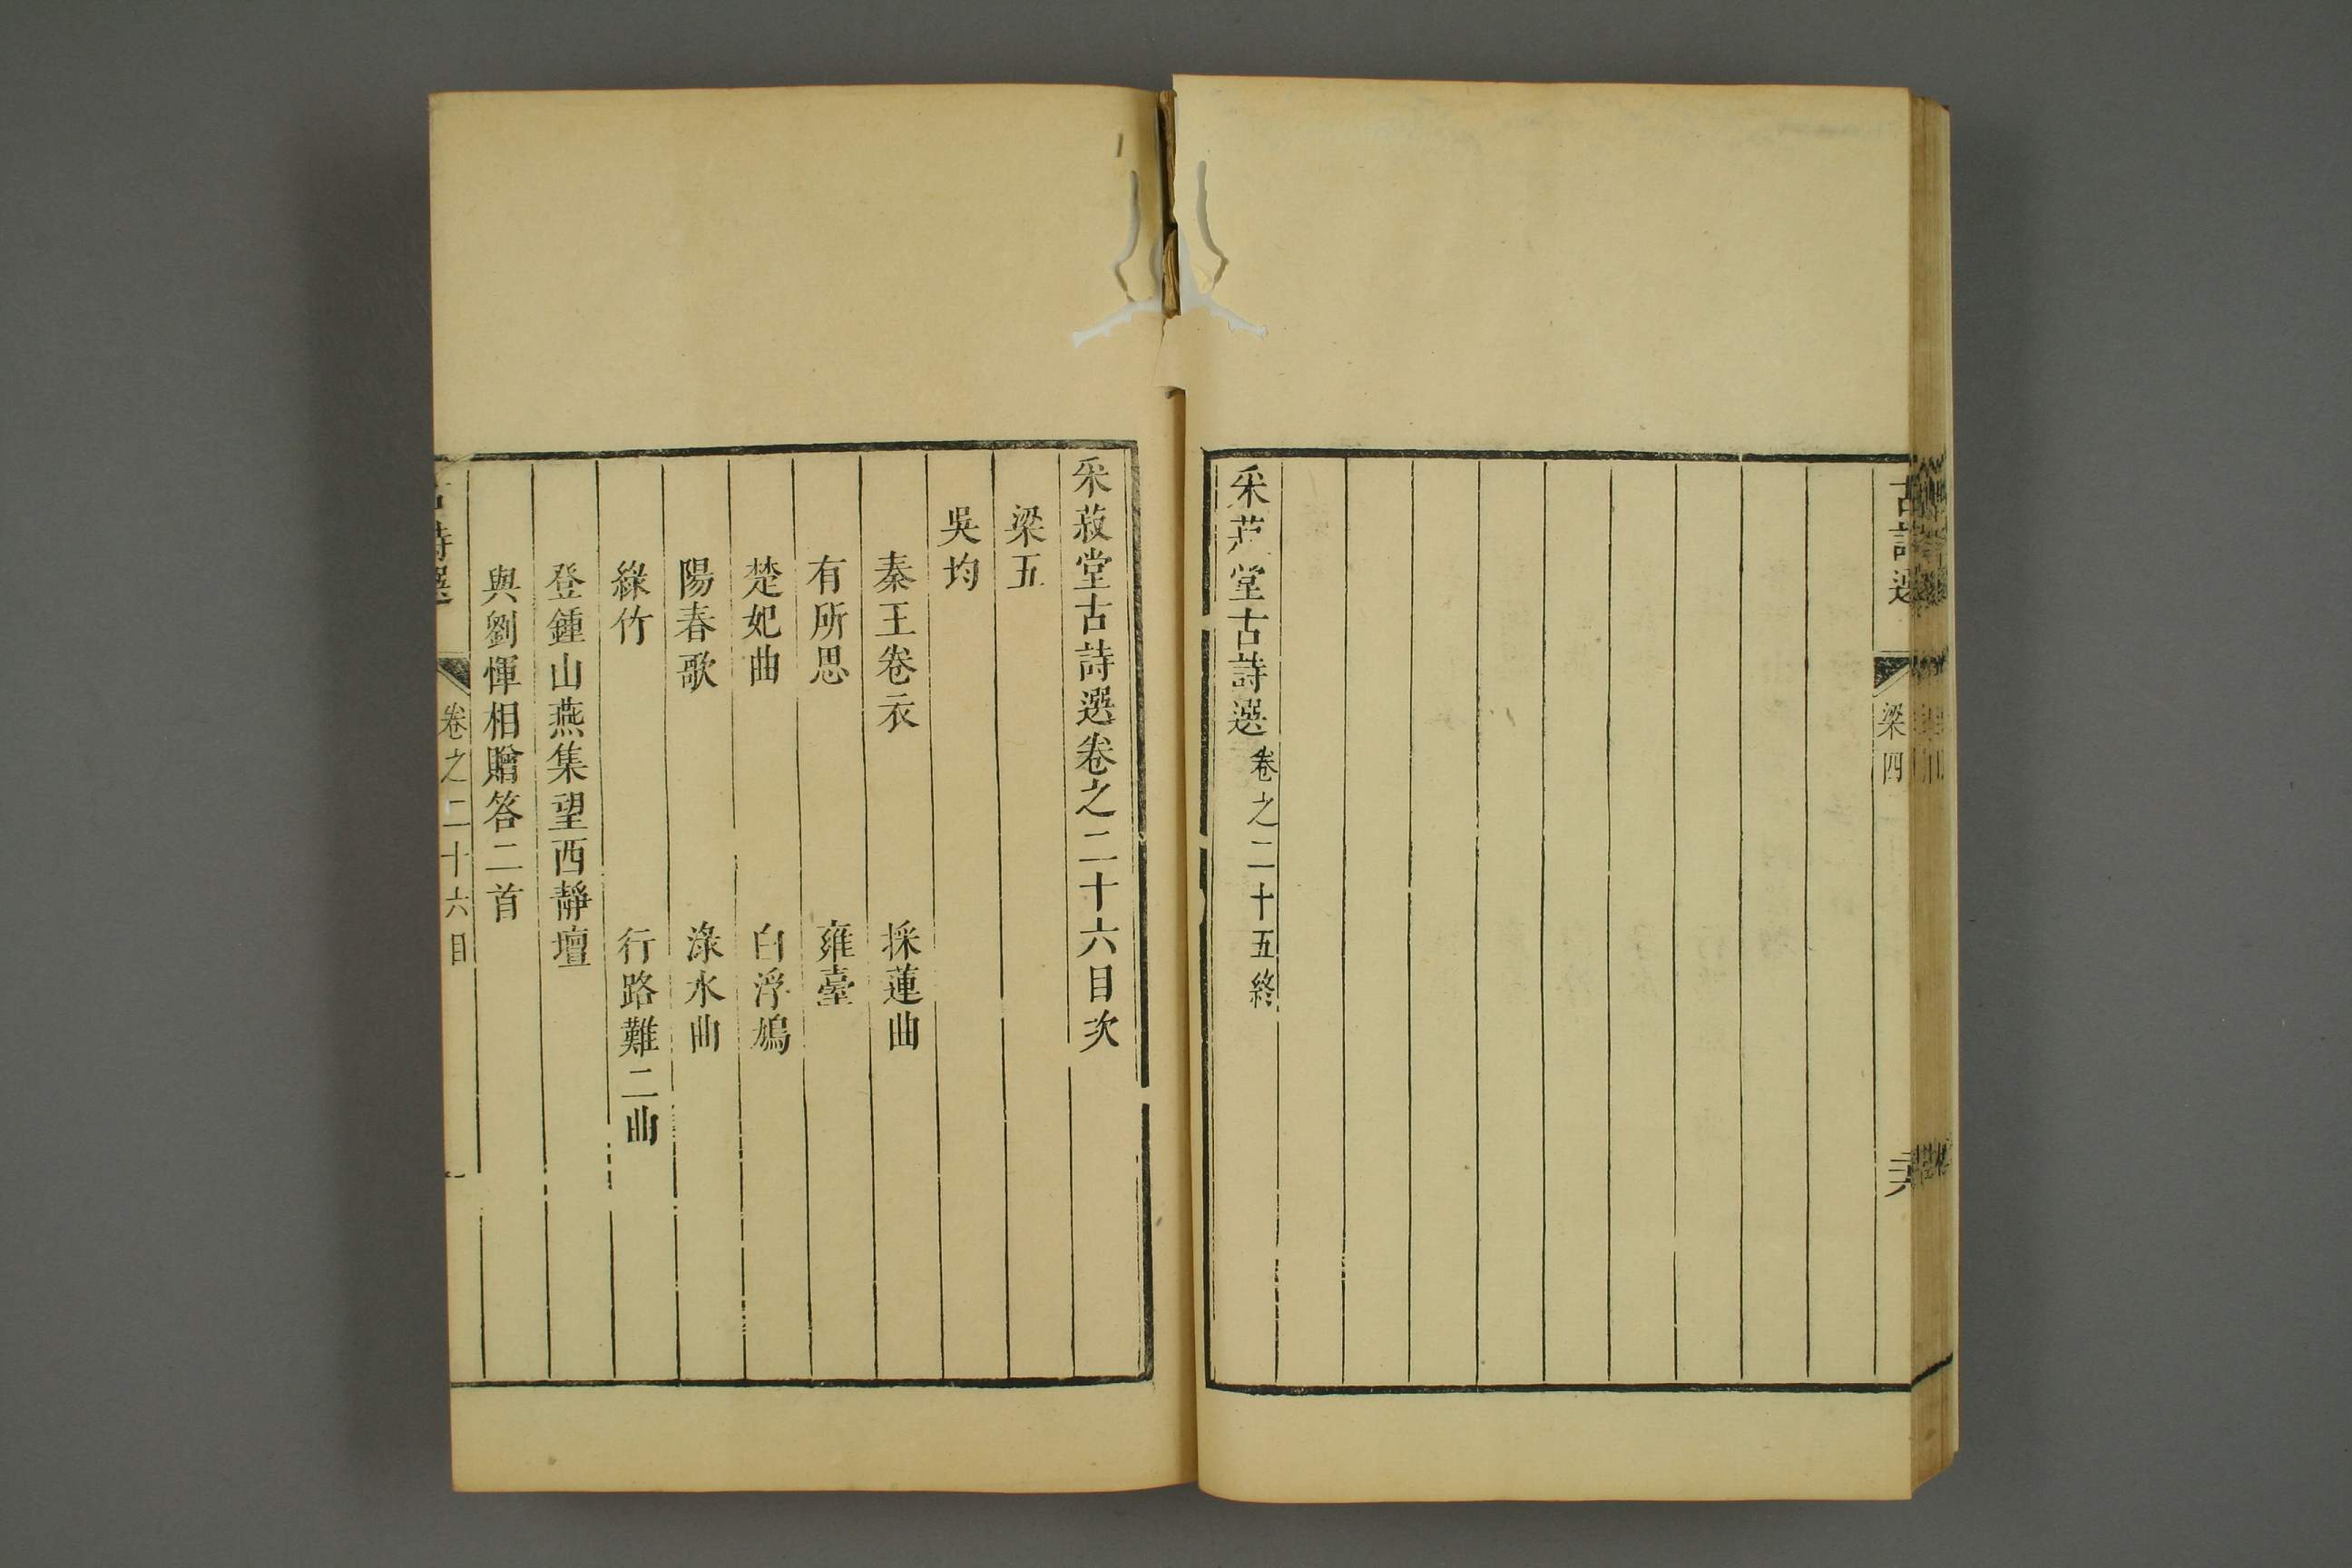 古詩選
梁四
采菽堂古詩選卷之二十五終
采菽堂古詩選卷之二十六目次
梁五
吳均
秦王卷衣 採蓮曲
有所思 雍臺
楚妃曲 白浮鳩
陽春歌 淥水曲
綠竹 行路難二曲
登鍾山燕集望西靜壇
與劉惲相贈答二首
古詩選 卷之二十六目 一